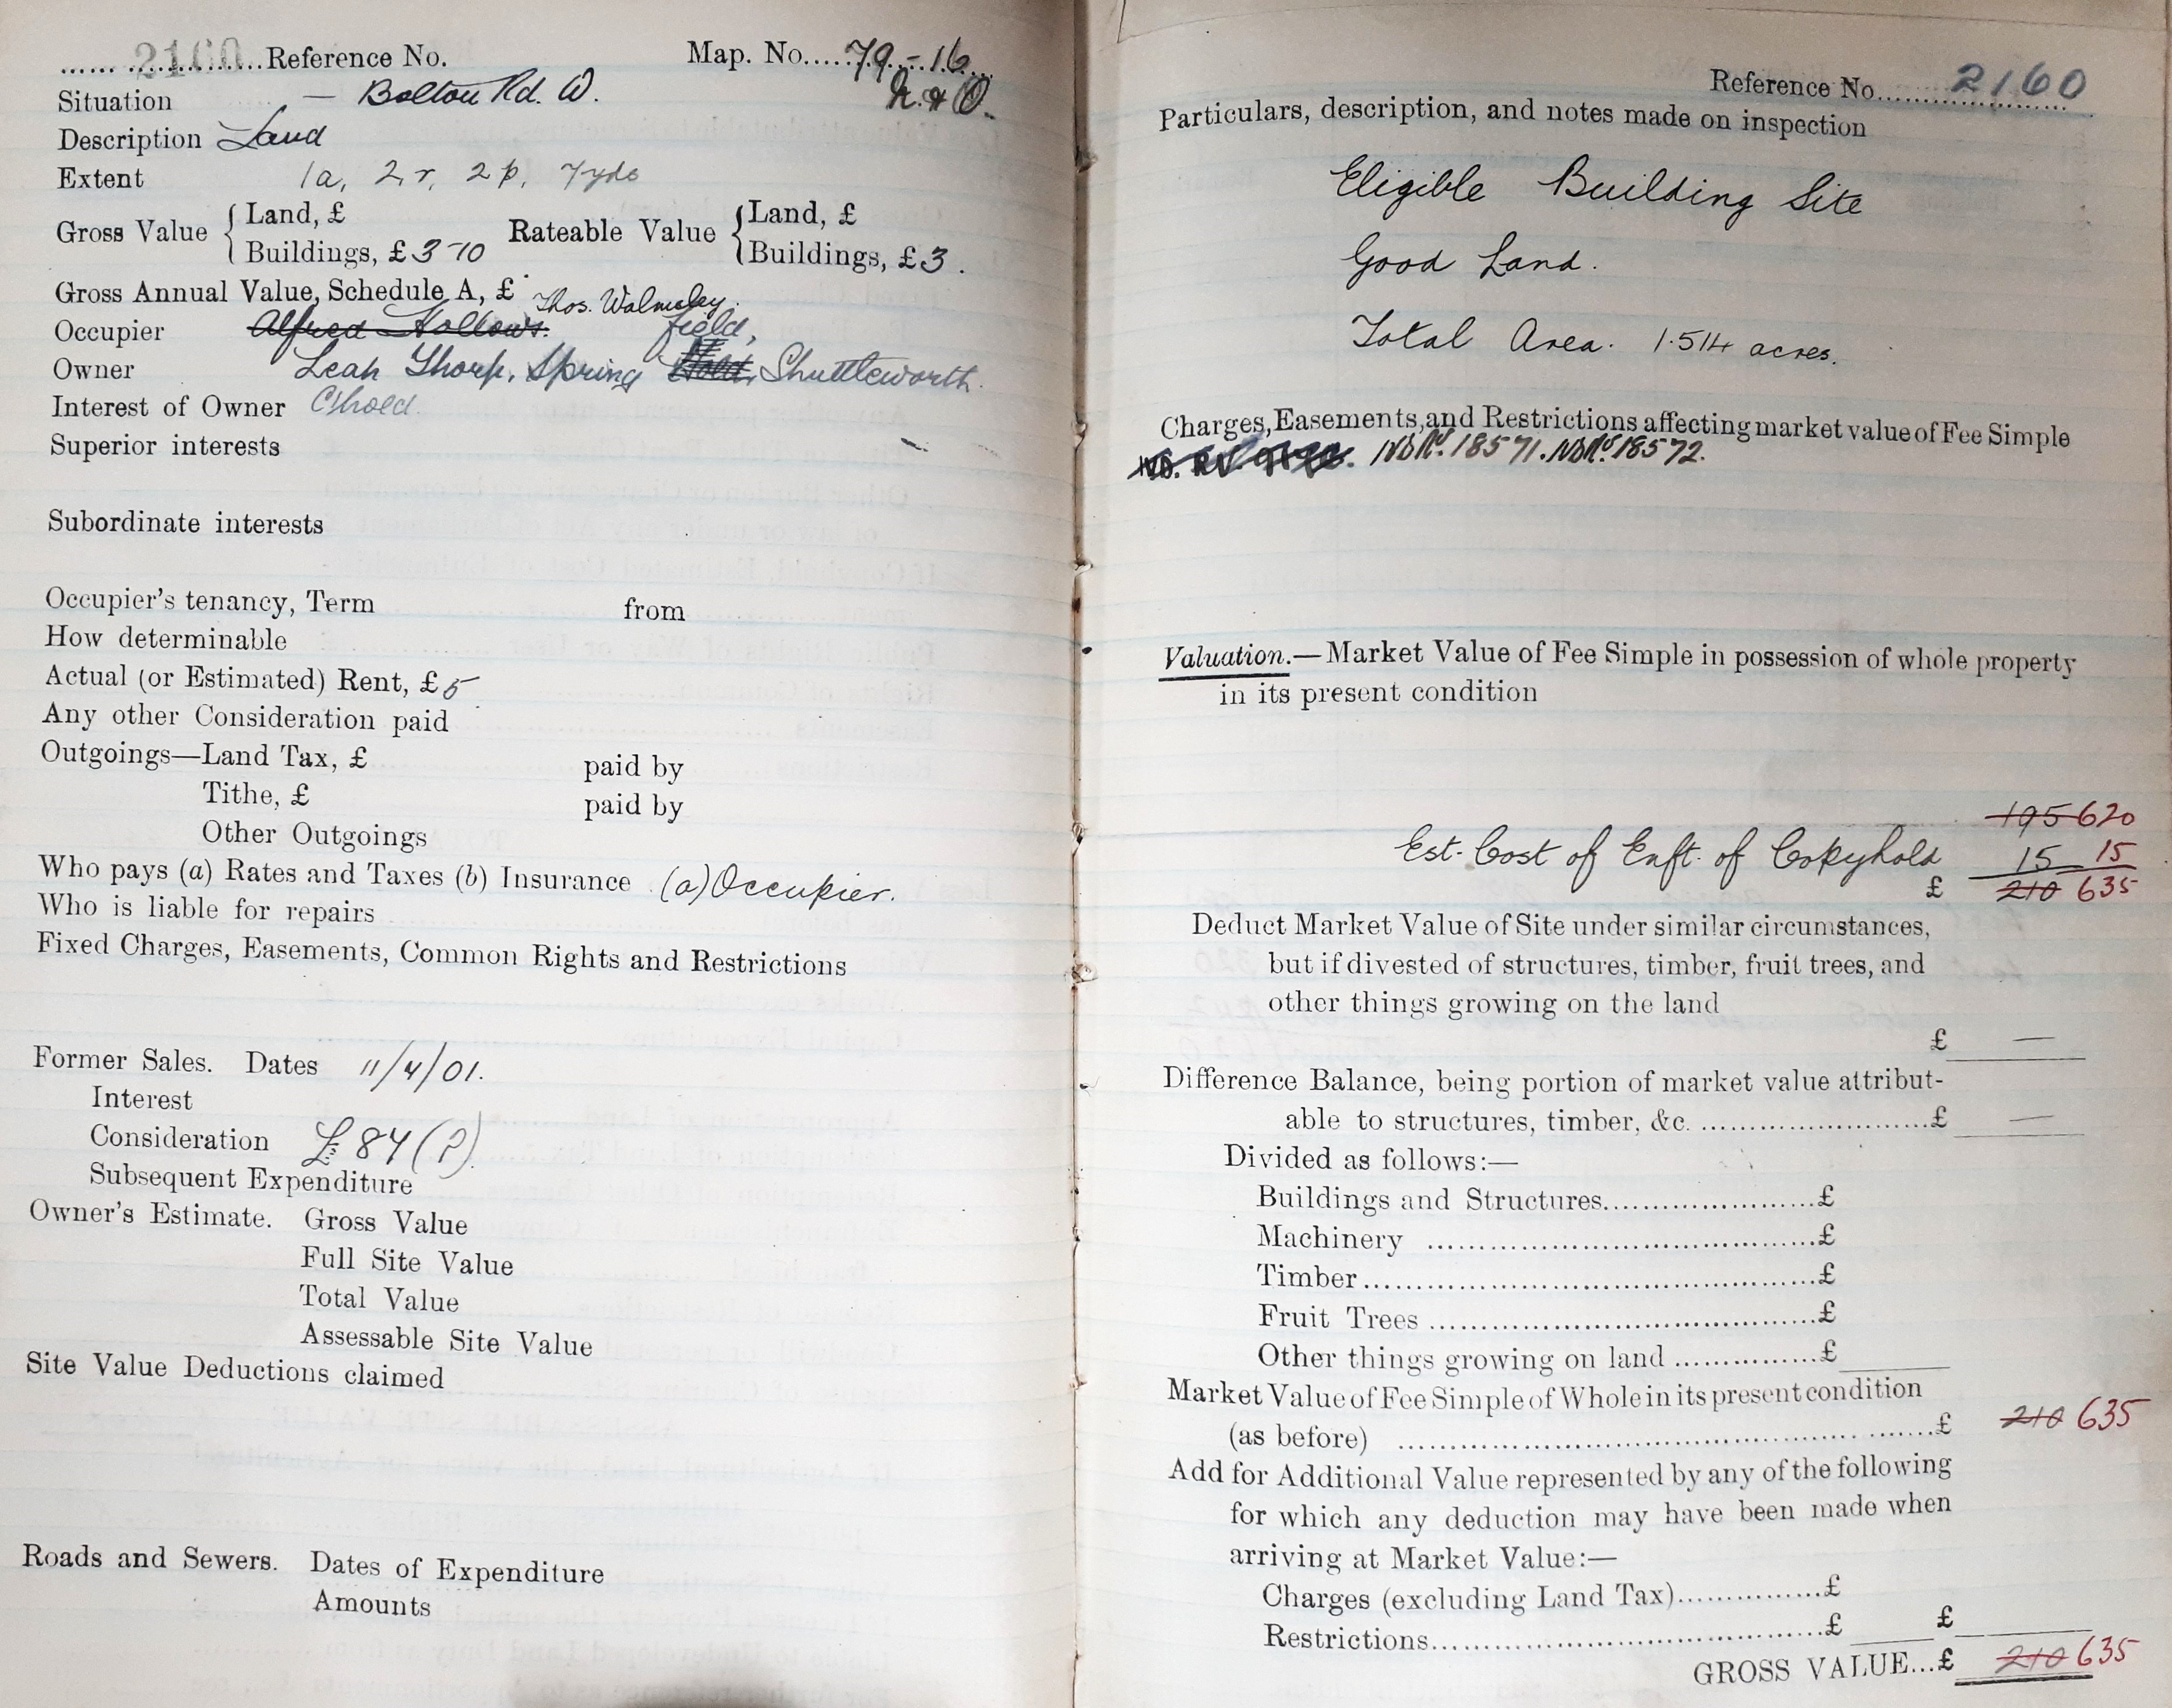 2160 Reference No. Map. No. 79-16
Situation — Bolton Rd. W. N. & O.
Description Land
Extent 1a, 2r, 2p, 7yds
Gross Value { Land, £ Rateable Value { Land, £
Buildings, £3-10 Buildings, £3.
Gross Annual Value, Schedule A, £
Thos. Walmsley.
Occupier Alfred Hollows. field,
Owner Leah Thorp, Spring Hold, Shuttleworth.
Interest of Owner C/hold.
Superior interests
Subordinate interests
Occupier's tenancy, Term from
How determinable
Actual (or Estimated) Rent, £5
Any other Consideration paid
Outgoings—Land Tax, £ paid by
Tithe, £ paid by
Other Outgoings
Who pays (a) Rates and Taxes (b) Insurance (a) Occupier.
Who is liable for repairs
Fixed Charges, Easements, Common Rights and Restrictions
Former Sales. Dates 11/4/01.
Interest
Consideration £84(?)
Subsequent Expenditure
Owner's Estimate. Gross Value
Full Site Value
Total Value
Assessable Site Value
Site Value Deductions claimed
Roads and Sewers. Dates of Expenditure
Amounts
Reference No. 2160
Particulars, description, and notes made on inspection
Eligible Building Site
Good Land.
Total Area. 1.514 acres.
Charges, Easements, and Restrictions affecting market value of Fee Simple
18571. 18572.
Valuation.—Market Value of Fee Simple in possession of whole property
in its present condition
195 620
Est. Cost of Enft. of Copyhold 15 15
£ 210 635
Deduct Market Value of Site under similar circumstances,
but if divested of structures, timber, fruit trees, and
other things growing on the land
£ —
Difference Balance, being portion of market value attribut-
able to structures, timber, &c. £ —
Divided as follows:—
Buildings and Structures £
Machinery £
Timber £
Fruit Trees £
Other things growing on land £
Market Value of Fee Simple of Whole in its present condition
(as before) £ 210 635
Add for Additional Value represented by any of the following
for which any deduction may have been made when
arriving at Market Value:—
Charges (excluding Land Tax) £
Restrictions £ £
GROSS VALUE...£ 210 635